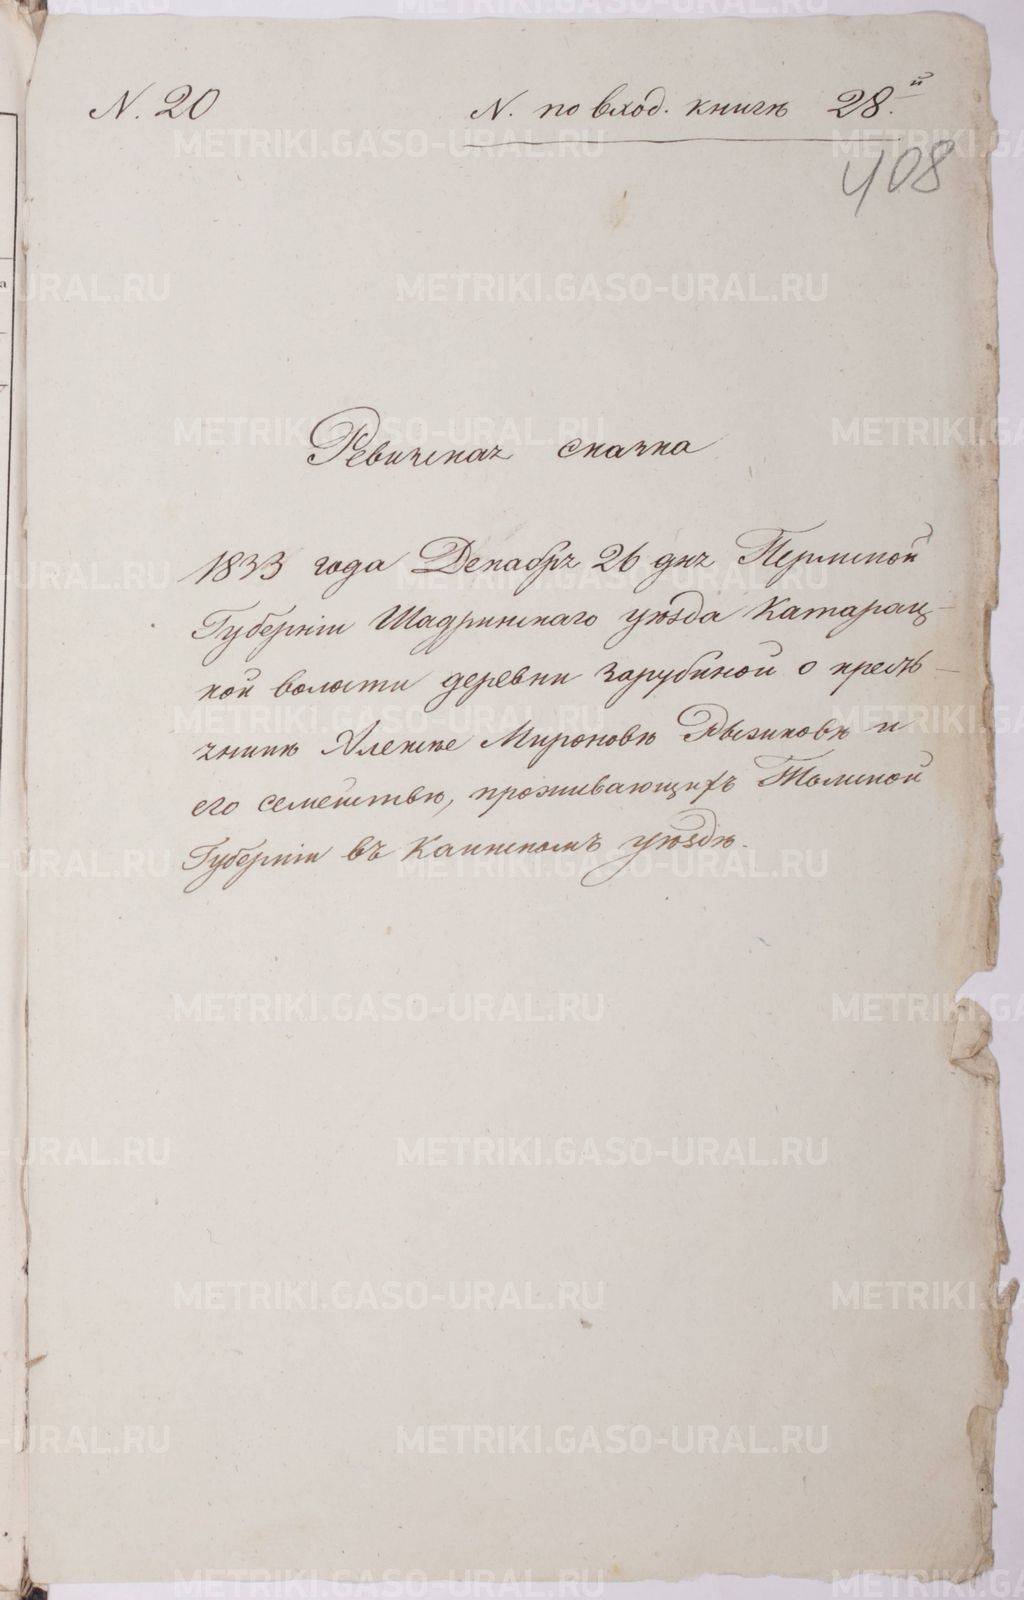 N. 20
N. по вход. книгѣ 28.й
408
Ревизская сказка
1833 года Декабря 26 дня Пермской
Губерніи Шадринскаго уѣзда Катарац-
кой волости деревни Зарубиной о кресть-
янинѣ Алексѣе Мироновѣ Рызиковѣ и
его семействѣ, проживающихъ Томской
Губерніи въ Каинскомъ уѣздѣ.
METRIKI.GASO-URAL.RU